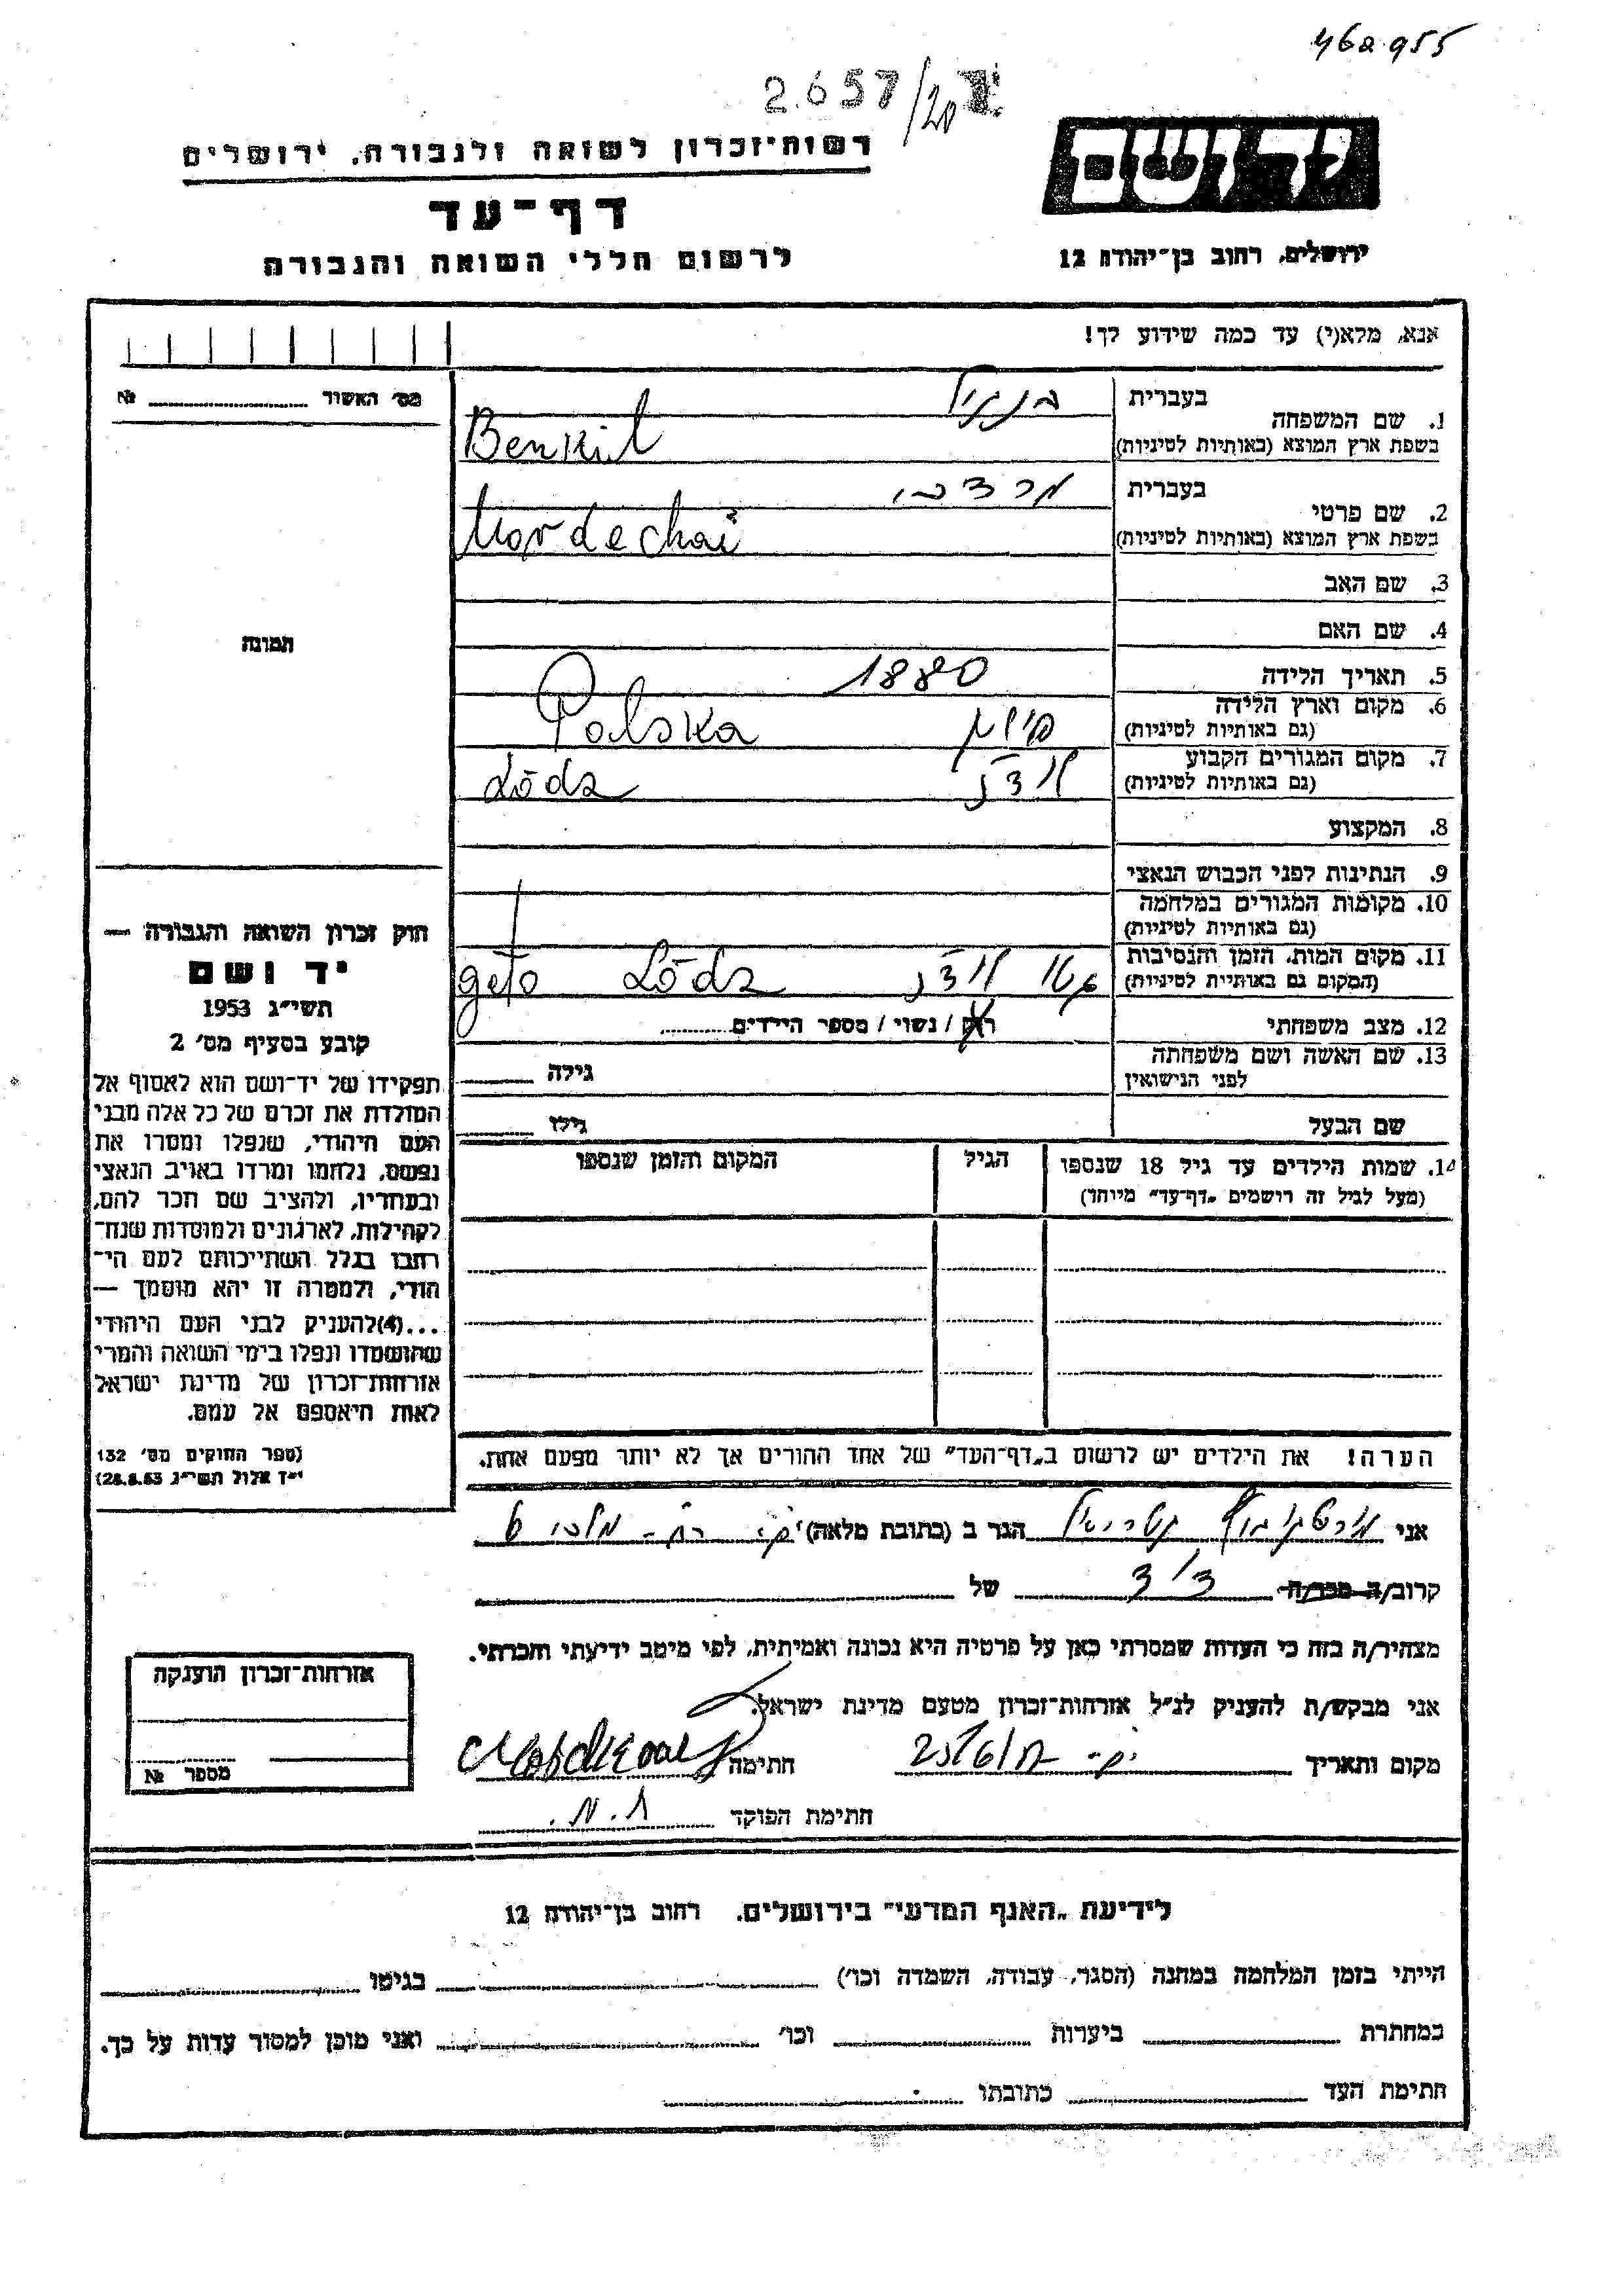 462955
2657/20
רשות־זכרון לשואה ולגבורה, ירושלים
יד ושם
דף־עד
לרשום חללי השואה והגבורה
ירושלים, רחוב בן־יהודה 12
אנא, מלא(י) עד כמה שידוע לך!
מס׳ האשור № 
1. שם המשפחה
בעברית
בשפת ארץ המוצא (באותיות לטיניות) Benkil
2. שם פרטי
בעברית מרדכי
בשפת ארץ המוצא (באותיות לטיניות) Mordechai
3. שם האב
4. שם האם
תמונה
5. תאריך הלידה 1880
6. מקום וארץ הלידה
(גם באותיות לטיניות) פולין Polska
7. מקום המגורים הקבוע
(גם באותיות לטיניות) לודז׳ Lódz
8. המקצוע
9. הנתינות לפני הכבוש הנאצי
10. מקומות המגורים במלחמה
(גם באותיות לטיניות)
11. מקום המות, הזמן והנסיבות
(המקום גם באותיות לטיניות) גטו לודז׳ geto Lódz
12. מצב משפחתי רוק / נשוי / מספר הילדים
13. שם האשה ושם משפחתה
לפני הנישואין גילה
שם הבעל גילו
14. שמות הילדים עד גיל 18 שנספו הגיל המקום והזמן שנספו
(מעל לגיל זה רושמים „דף־עד” מיוחד)
חוק זכרון השואה והגבורה —
יד ושם
תשי״ג 1953
קובע בסעיף מס׳ 2
תפקידו של יד־ושם הוא לאסוף אל
המולדת את זכרם של כל אלה מבני
העם היהודי, שנפלו ומסרו את
נפשם, נלחמו ומרדו באויב הנאצי
ובעוזריו, ולהציב שם וזכר להם,
לקהילות, לארגונים ולמוסדות שנח־
רבו בגלל השתייכותם לעם הי־
הודי, ולמטרה זו יהא מוסמך —
...(4) להעניק לבני העם היהודי
שהושמדו ונפלו בימי השואה והמרי
אזרחות־זכרון של מדינת ישראל
לאות היאספם אל עמם.
(ספר החוקים מס׳ 132
י״ד אלול תשי״ג 28.8.53)
הערה! את הילדים יש לרשום ב„דף־העד” של אחד ההורים אך לא יותר מפעם אחת.
אני הגר ב (כתובת מלאה)
קרוב/ה מכר/ה של
מצהיר/ה בזה כי העדות שמסרתי כאן על פרטיה היא נכונה ואמיתית, לפי מיטב ידיעתי והכרתי.
אני מבקש/ת להעניק לנ״ל אזרחות־זכרון מטעם מדינת ישראל.
מקום ותאריך חתימה
חתימת הפוקד
אזרחות־זכרון הוענקה
מספר №
לידיעת „האגף המדעי” בירושלים, רחוב בן־יהודה 12
הייתי בזמן המלחמה במחנה (הסגר, עבודה, השמדה וכו׳) בגיטו
במחתרת ביערות וכו׳ ואני מוכן למסור עדות על כך.
חתימת העד כתובתו